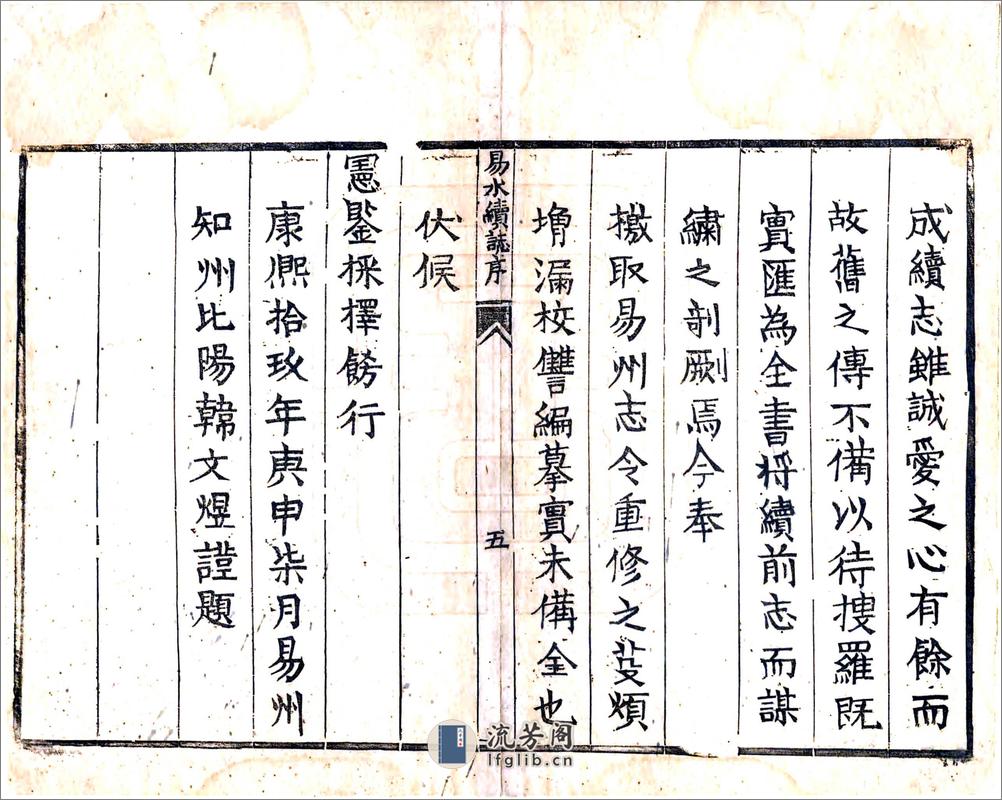 成續志雖誠愛之心有餘而
故舊之傳不備以待搜羅既
實匯為全書將續前志而謀
繡之剞劂焉今奉
檄取易州志令重修之芟煩
增漏校讐編摹實未備全也
伏候
易水續誌序
五
憲鍳採擇餝行
康熙拾玖年庚申柒月易州
知州比陽韓文煜謹題
流芳阁
lfglib.cn